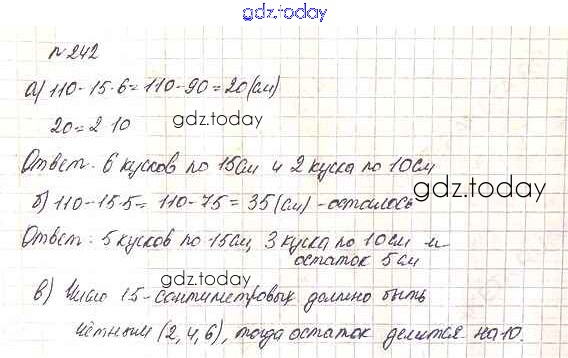 gdz.today
№ 242
а) 110 - 15·6 = 110 - 90 = 20 (см)
20 = 2·10
gdz.today
Ответ: 6 кусков по 15см и 2 куска по 10см
gdz.today
б) 110 - 15·5 = 110 - 75 = 35 (см) - осталось
Ответ: 5 кусков по 15см, 3 куска по 10см и
остаток 5 см
gdz.today
в) Число 15-сантиметровых должно быть
чётным (2, 4, 6), тогда остаток делится на 10.